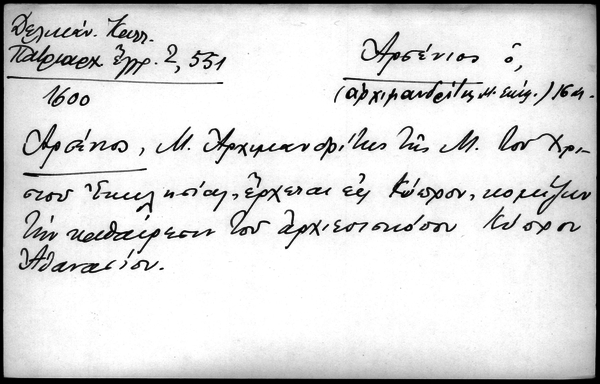 Δελικάν. Καλλ.
Πατριαρχ. Ἔγγρ. 2, 551
1600
Ἀρσένιος ὁ,
(ἀρχιμανδρίτης Μ. Ἐκκλ.) 16 αι.
Ἀρσένιος, Μ. Ἀρχιμανδρίτης τῆς Μ. τοῦ Χρι-
στοῦ Ἐκκλησίας, ἔρχεται εἰς Κύπρον, κομίζων
τὴν καθαίρεσιν τοῦ ἀρχιεπισκόπου Κύπρου
Ἀθανασίου.